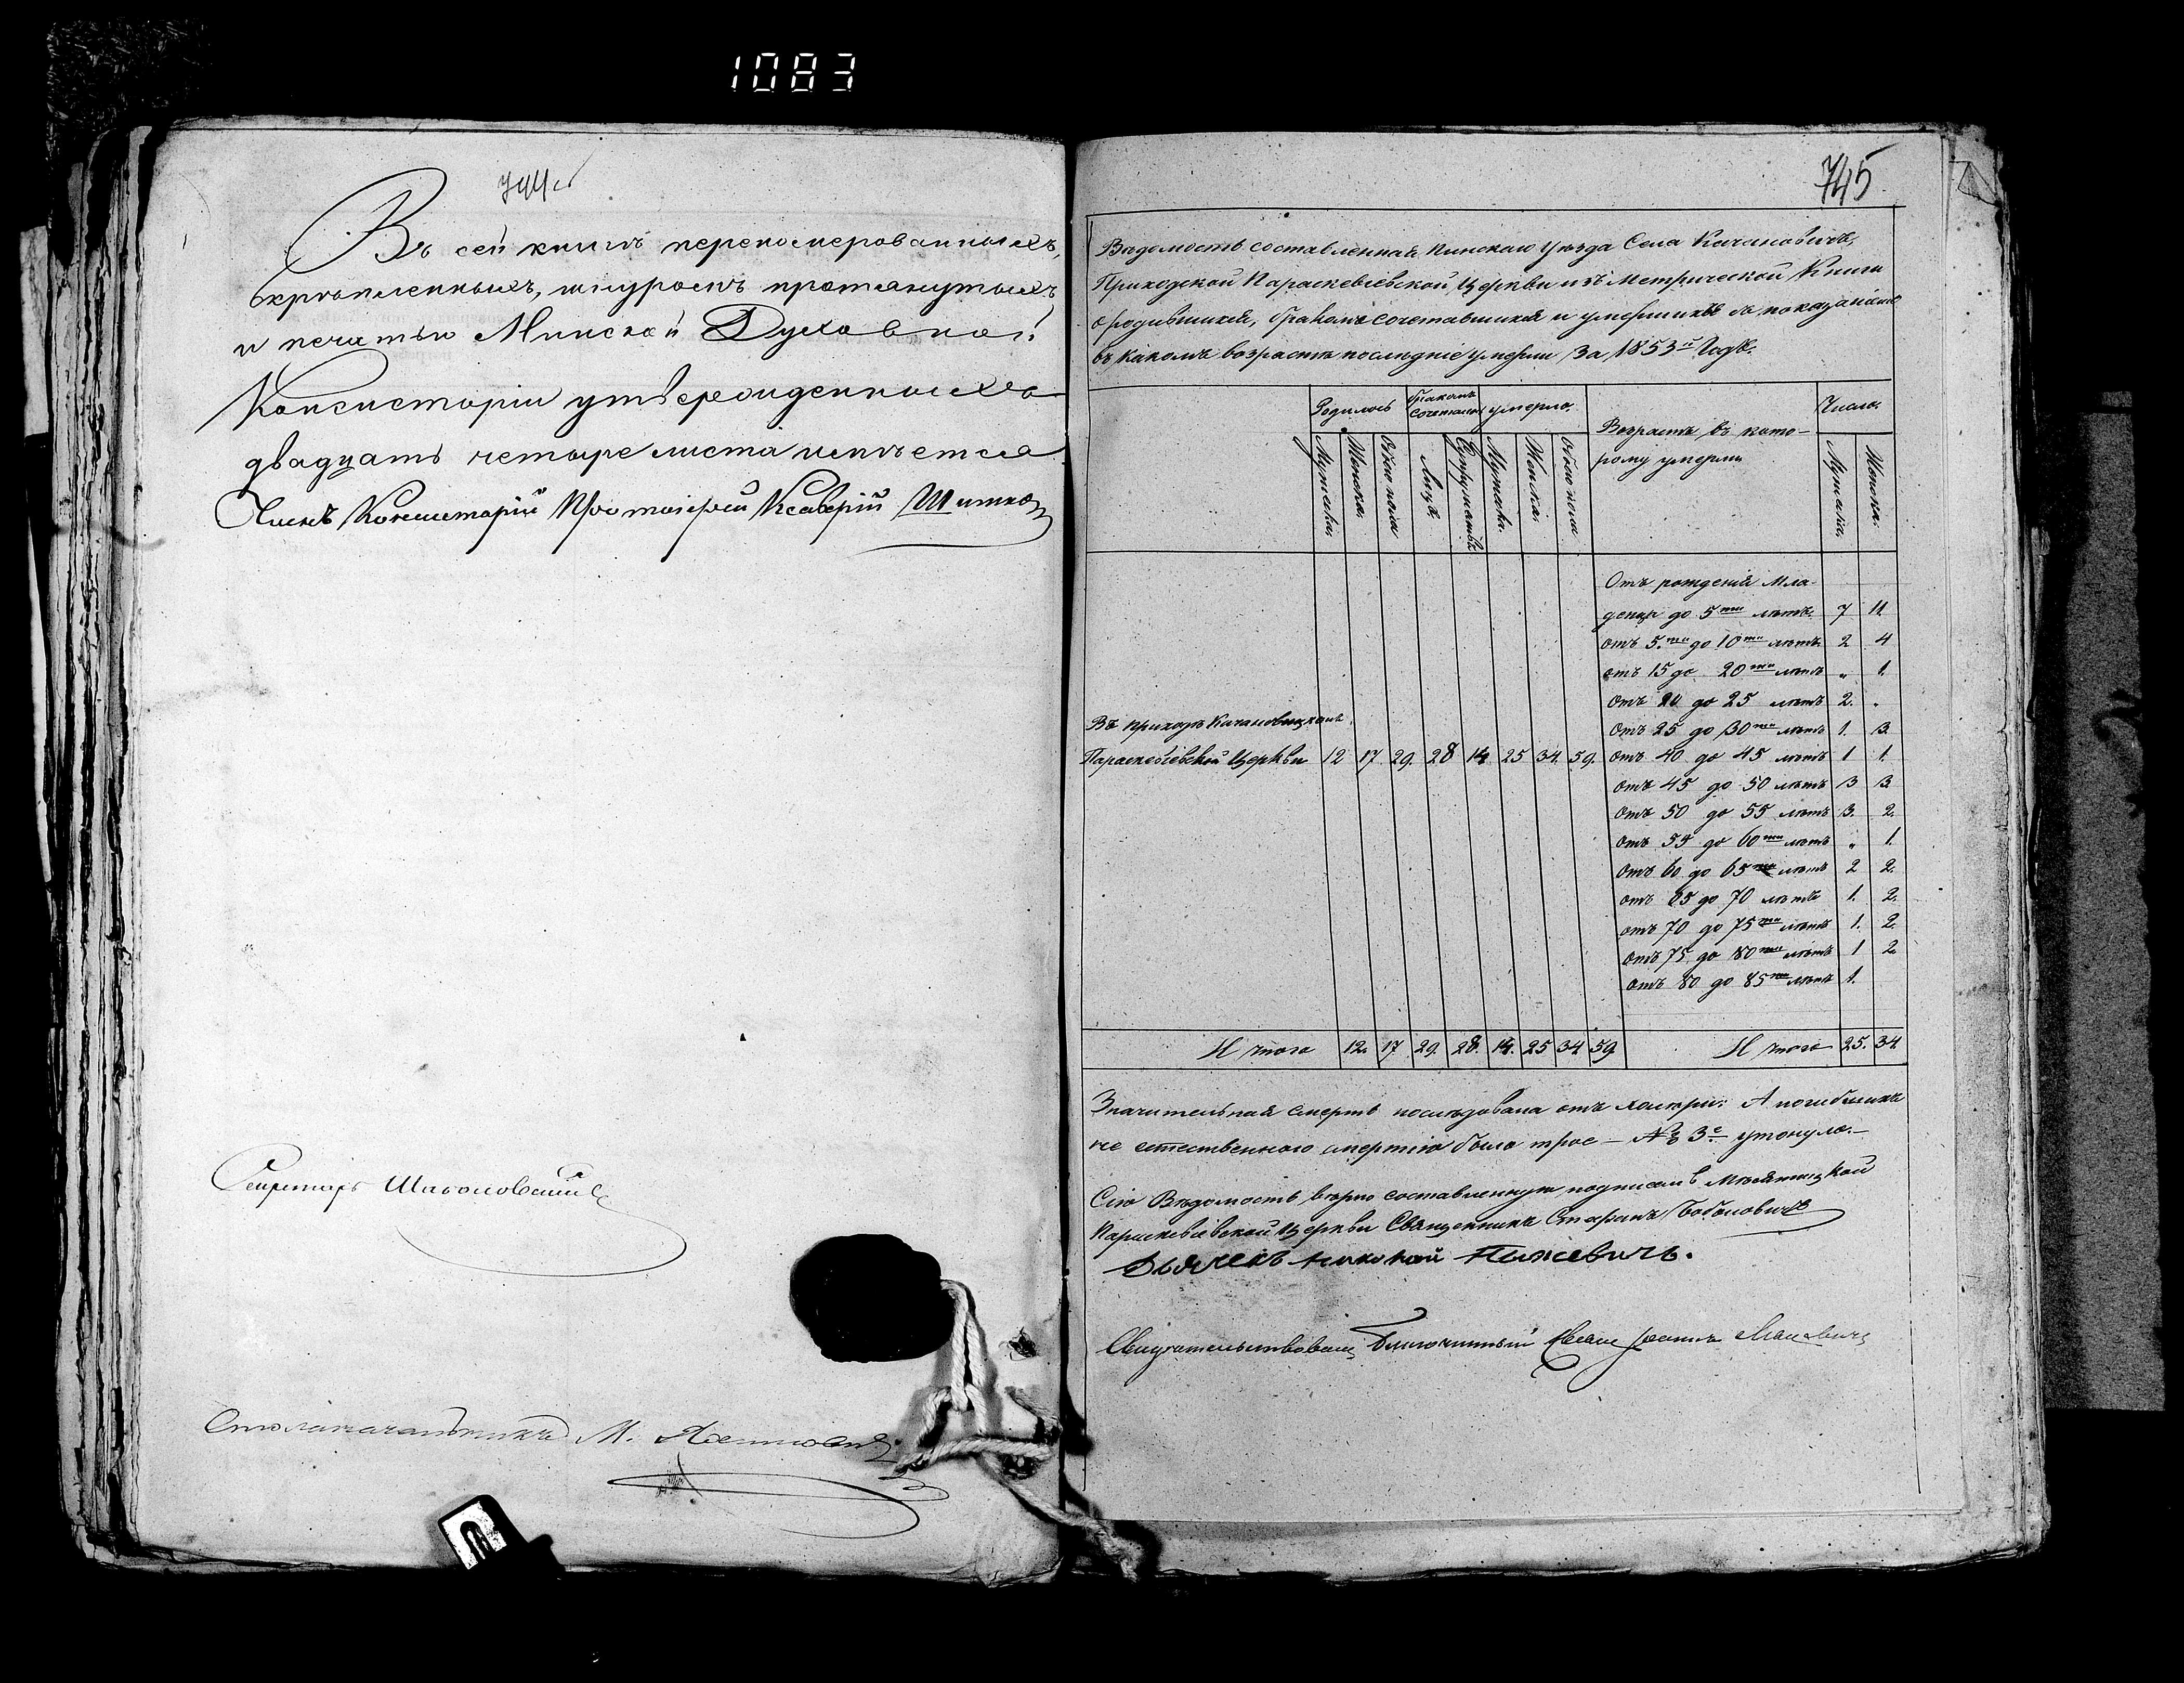 1083
744 об
Въ сей книгѣ перенумерованныхъ,
скрѣпленныхъ, шнуромъ протянутыхъ
и печатью Минской Духовной
Консисторіи утвержденныхъ
двадцать четыре листа имѣется
Членъ Консисторіи Протоіерей Ксаверій
Секретарь
Столоначальникъ М.
745
Вѣдомость составленная Пинскаго Уѣзда Села Качановичъ,
Приходской Параскевіевской Церкви изъ Метрической Книги
о родившихся, бракомъ сочетавшихся и умершихъ съ показаніемъ
въ какомъ возрастѣ послѣдніе умерли за 1853й Годъ.
Родилось Бракомъ сочетались умерло. Возрастъ въ кото- Число.
рому умерли
Мужеска. Женска. Обоего пола Лицъ. Супружествъ Мужеска. Женска. Обоего пола Мужеска. Женска.
Отъ рожденія мла-
денцы до 5ти лѣтъ. 7 11.
отъ 5.ти до 10ти лѣтъ 2 4
отъ 15 до 20ти лѣтъ „ 1.
отъ 20 до 25 лѣтъ 2. „
Отъ 25 до 30ти лѣтъ 1. 3.
Въ приходѣ Качановицкомъ
Параскевіевской Церкви 12 17 29. 28 14 25 34. 59. отъ 40 до 45 лѣтъ 1 1.
отъ 45 до 50 лѣтъ 3 3
отъ 50 до 55 лѣтъ 3. 2.
отъ 55 до 60ти лѣтъ „ 1.
отъ 60 до 65ти лѣтъ 2 2.
отъ 65 до 70 лѣтъ 1. 2.
отъ 70 до 75ти лѣтъ 1. 2.
отъ 75 до 80ти лѣтъ 1 2
отъ 80 до 85ти лѣтъ 1.
Итого 12. 17 29. 28. 14. 25 34 59 Итого 25. 34
Значительная смерть послѣдовала отъ холеры; А погибшихъ
не естественною смертію было трое – № 3е утонуло.–
Сію Вѣдомость вѣрно составленную подписалъ
Параскевіевской Церкви Священникъ Стефанъ Боболовичъ
Дьячекъ Николай
Свидѣтельствовалъ Благочинный Свящ Іоаннъ